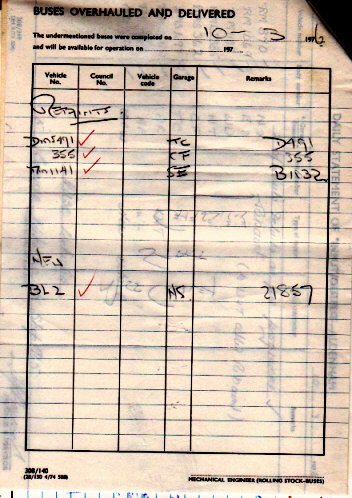 BUSES OVERHAULED AND DELIVERED
The undermentioned buses were completed on 10-3 1976
and will be available for operation on 197
Vehicle No. Council No. Vehicle code Garage Remarks
Repaints.
DMS491 ✓ TC D491
355 ✓ CF 355
TM1141 ✓ SE B1132
NEW
BL2 ✓ NS 21857
30B/140
MECHANICAL ENGINEER (ROLLING STOCK-BUSES)